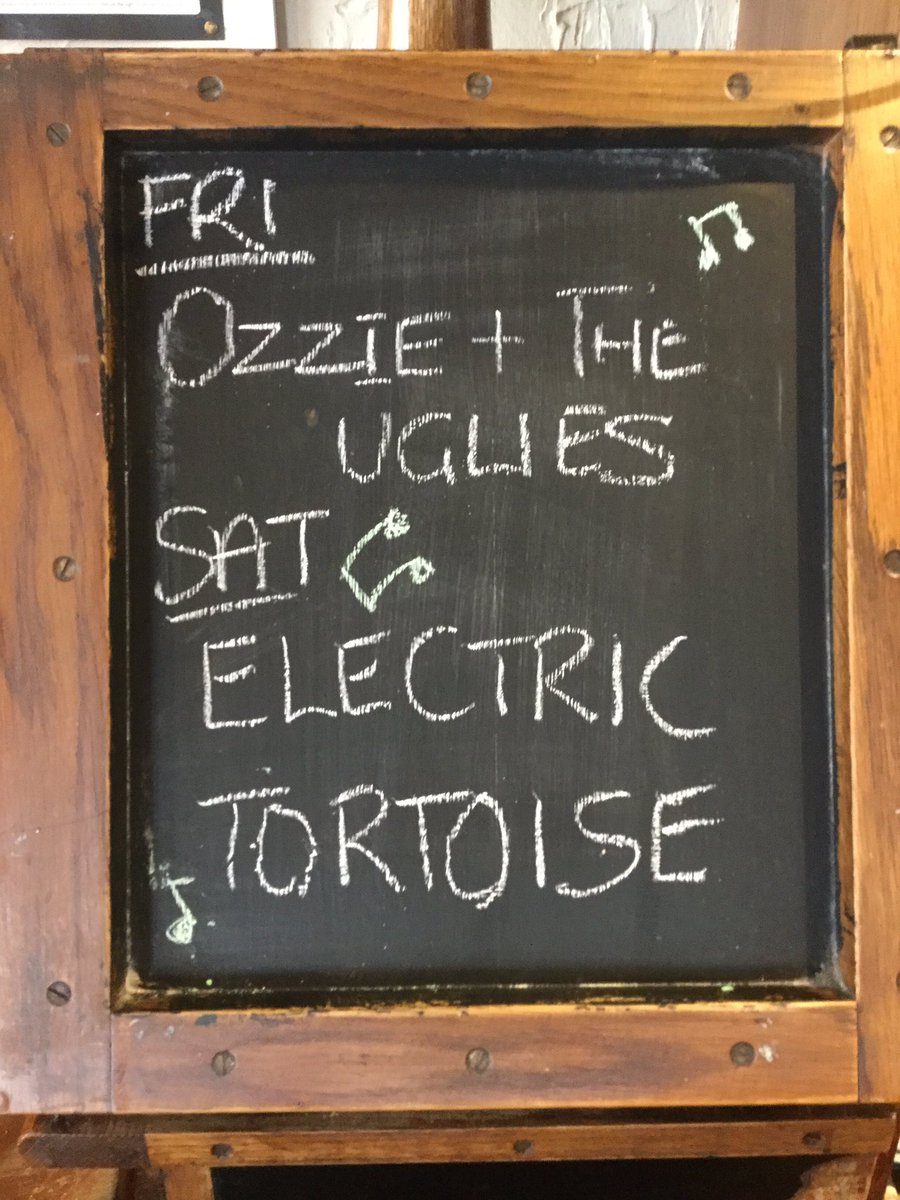 FRI
OZZIE + THE
UGLIES
SAT
ELECTRIC
TORTOISE